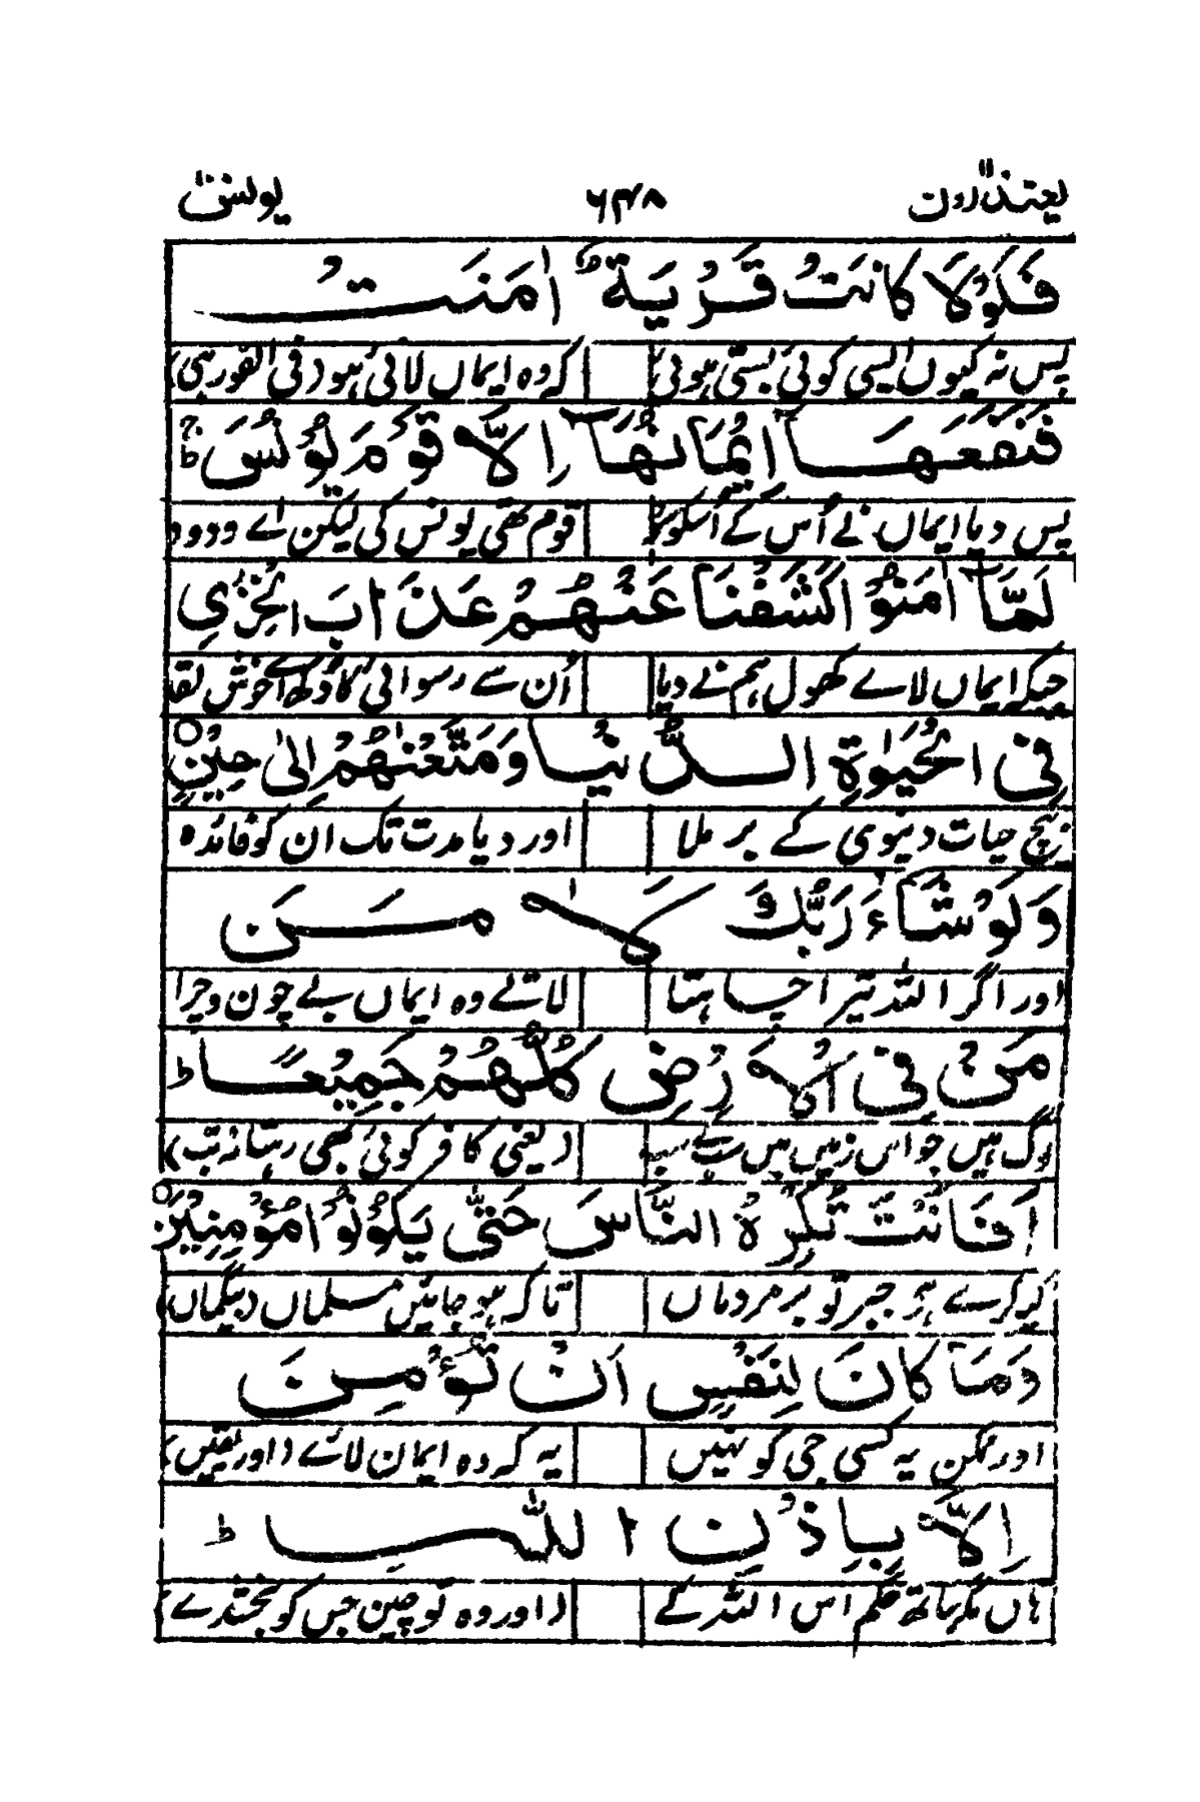 یعتذرون ۶۴۸ یونس
فَلَوْلَا كَانَتْ قَرْيَةٌ اٰمَنَتْ
پس نہ کیوں ایسی کوئی بستی ہوئی کہ وہ ایماں لائی ہو (فی الفور ہی)
فَنَفَعَهَاۤ اِيْمَانُهَاۤ اِلَّا قَوْمَ يُوْنُسَ ؕ
پس دیا ایماں نے اُس کے اُسکو قوم تھی یونس کی لیکن اے ودود
لَمَّاۤ اٰمَنُوْا كَشَفْنَا عَنْهُمْ عَذَابَ الْخِزْيِ
جبکہ ایماں لائے کھول ہم نے دیا اُن سے رسوائی کا دکھ اے خوش لقا
فِی الْحَيٰوةِ الدُّنْيَا وَمَتَّعْنٰهُمْ اِلٰى حِيْنٍ
بیچ حیات دنیوی کے بر ملا اور دیا مدت تک ان کو فائدہ
وَلَوْ شَآءَ رَبُّكَ لَاٰمَنَ
اور اگر اللہ تیرا چاہتا لاتے وہ ایماں بے چون و چرا
مَنْ فِی الْاَرْضِ كُلُّهُمْ جَمِيْعًا ؕ
لوگ ہیں جو اس زمیں میں رہتے سب (یعنی کافر کوئی بھی رہتا نہ تب)
اَفَاَنْتَ تُكْرِهُ النَّاسَ حَتّٰى يَكُوْنُوْا مُؤْمِنِيْنَ
کرے ہے جبر تو بر مردماں تا کہ ہو جائیں مسلماں (بیگماں)
وَمَا كَانَ لِنَفْسٍ اَنْ تُؤْمِنَ
اور ممکن یہ کسی جی کو نہیں یہ کہ وہ ایمان لائے (اور یقیں)
اِلَّا بِاِذْنِ اللّٰهِ ؕ
ہاں مگر ساتھ حکم اس اللہ کے (اور وہ توچین جس کو بخشدے)